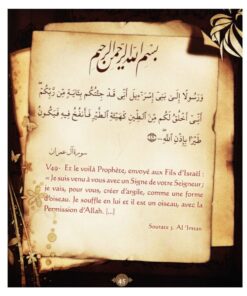 بسم الله الرحمن الرحيم
وَرَسُولًا إِلَىٰ بَنِي إِسْرَٰٓءِيلَ أَنِّي قَدْ جِئْتُكُم بِـَٔايَةٍ مِّن رَّبِّكُمْ
أَنِّيٓ أَخْلُقُ لَكُم مِّنَ ٱلطِّينِ كَهَيْـَٔةِ ٱلطَّيْرِ فَأَنفُخُ فِيهِ فَيَكُونُ
طَيْرًۢا بِإِذْنِ ٱللَّهِ
سورة آل عمران
V49- Et le voilà Prophète, envoyé aux Fils d'Israël :
« Je suis venu à vous avec un Signe de votre Seigneur;
je vais, pour vous, créer d'argile, comme une forme
d'oiseau. Je souffle en lui et il est un oiseau, avec la
Permission d'Allah. [...]
Sourate 3. Al 'Imran
45